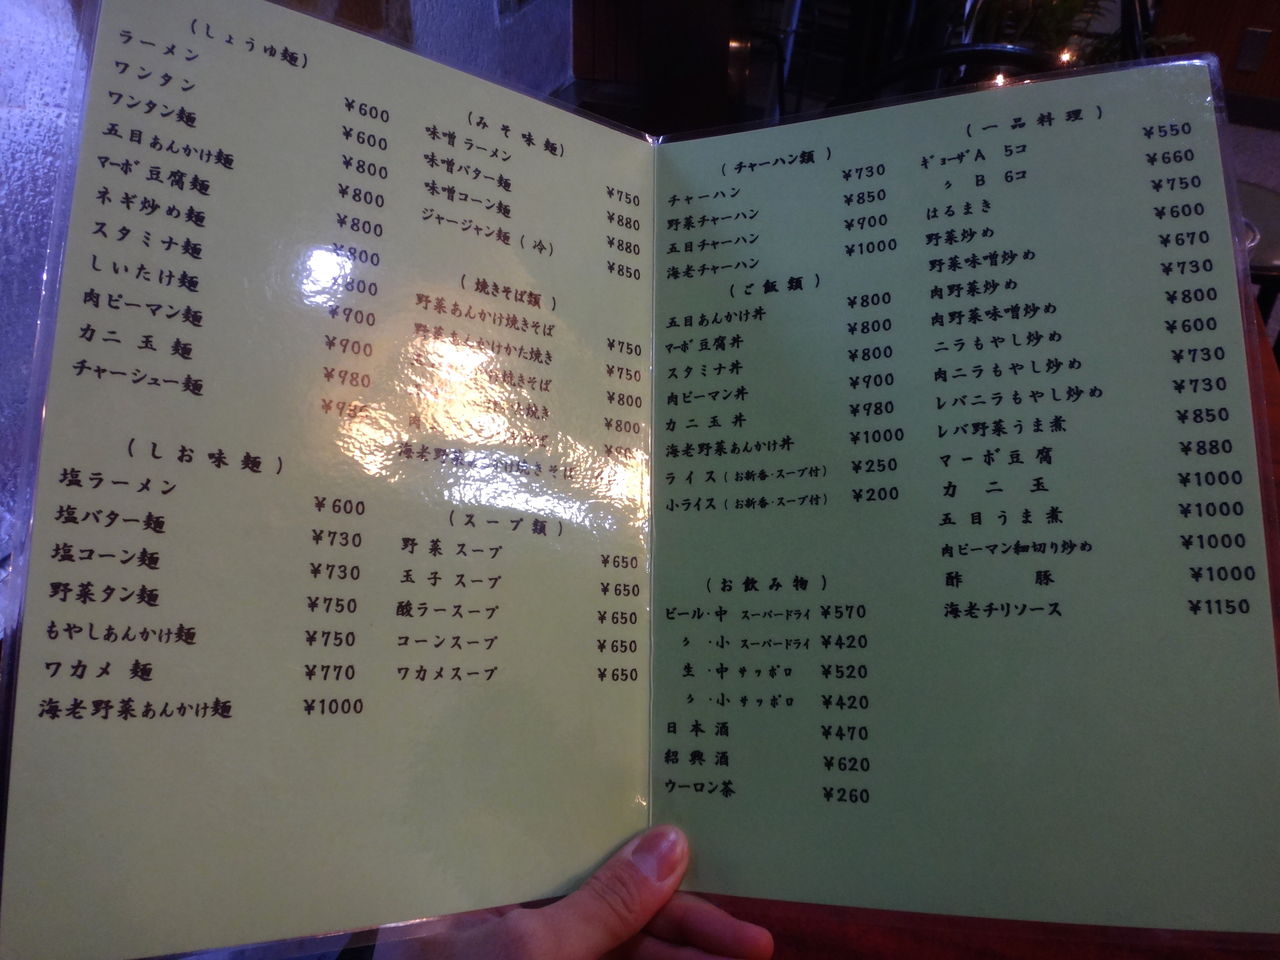 (しょうゆ麺)
ラーメン ¥600
ワンタン ¥600
ワンタン麺 ¥800
五目あんかけ麺 ¥800
マーボ豆腐麺 ¥800
ネギ炒め麺 ¥800
スタミナ麺 ¥800
しいたけ麺 ¥900
肉ピーマン麺 ¥900
カニ玉麺 ¥980
チャーシュー麺
(しお味麺)
塩ラーメン ¥600
塩バター麺 ¥730
塩コーン麺 ¥730
野菜タン麺 ¥750
もやしあんかけ麺 ¥750
ワカメ麺 ¥770
海老野菜あんかけ麺 ¥1000
(みそ味麺)
味噌ラーメン ¥750
味噌バター麺 ¥880
味噌コーン麺 ¥880
ジャージャン麺(冷) ¥850
(焼きそば類)
野菜あんかけ焼きそば ¥750
野菜あんかけかた焼き ¥750
焼きそば ¥800
焼き ¥800
肉
海老野菜あんかけ焼きそば
(スープ類)
野菜スープ ¥650
玉子スープ ¥650
酸ラースープ ¥650
コーンスープ ¥650
ワカメスープ ¥650
(チャーハン類)
チャーハン ¥730
野菜チャーハン ¥850
五目チャーハン ¥900
海老チャーハン ¥1000
(ご飯類)
五目あんかけ丼 ¥800
マーボ豆腐丼 ¥800
スタミナ丼 ¥800
肉ピーマン丼 ¥900
カニ玉丼 ¥980
海老野菜あんかけ丼 ¥1000
ライス(お新香・スープ付) ¥250
小ライス(お新香・スープ付) ¥200
(お飲み物)
ビール・中 スーパードライ ¥570
〃・小 スーパードライ ¥420
生・中 サッポロ ¥520
〃・小 サッポロ ¥420
日本酒 ¥470
紹興酒 ¥620
ウーロン茶 ¥260
(一品料理)
ギョーザA 5コ ¥550
〃 B 6コ ¥660
はるまき ¥750
野菜炒め ¥600
野菜味噌炒め ¥670
肉野菜炒め ¥730
肉野菜味噌炒め ¥800
ニラもやし炒め ¥600
肉ニラもやし炒め ¥730
レバニラもやし炒め ¥730
レバ野菜うま煮 ¥850
マーボ豆腐 ¥880
カニ玉 ¥1000
五目うま煮 ¥1000
肉ピーマン細切り炒め ¥1000
酢豚 ¥1000
海老チリソース ¥1150